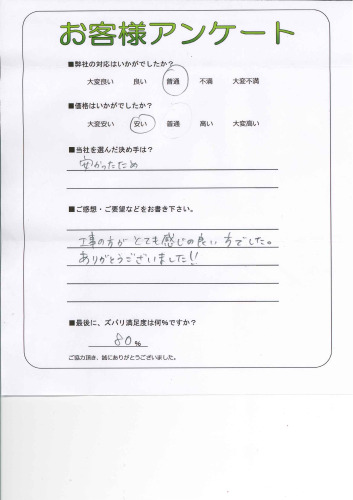 お客様アンケート
■弊社の対応はいかがでしたか？
大変良い 良い 普通 不満 大変不満
■価格はいかがでしたか？
大変安い 安い 普通 高い 大変高い
■当社を選んだ決め手は？
安かったため
■ご感想・ご要望などをお書き下さい。
工事の方がとても感じの良い方でした。
ありがとうございました!!
■最後に、ズバリ満足度は何%ですか？
80%
ご協力頂き、誠にありがとうございました。